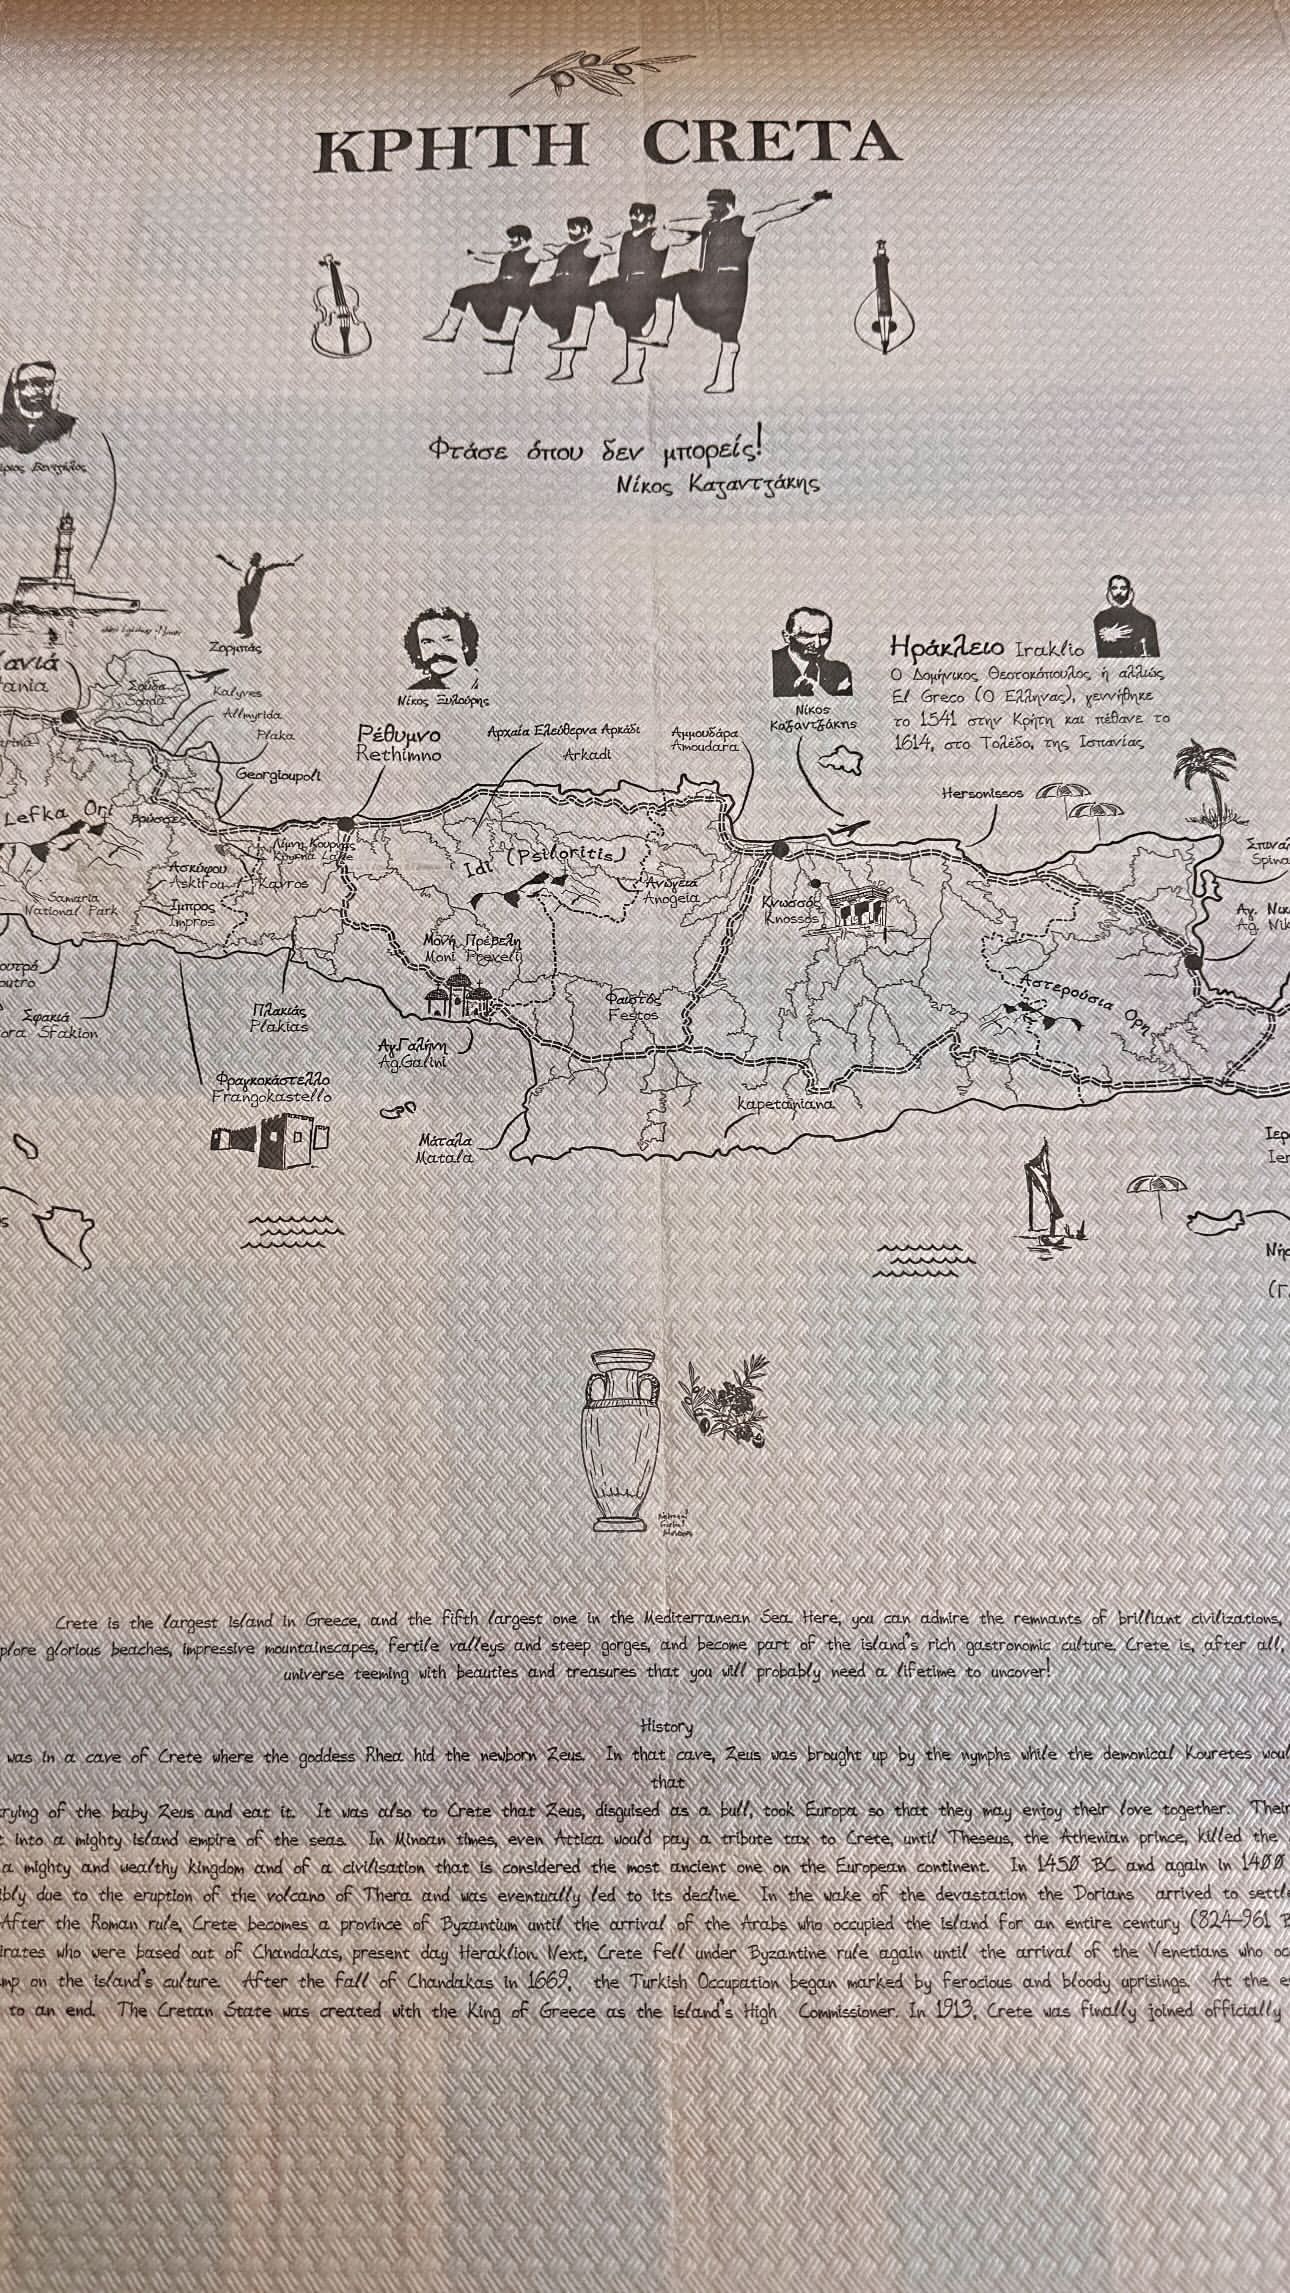 ΚΡΗΤΗ CRETA
Φτάσε όπου δεν μπορείς!
Νίκος Καζαντζάκης
Ζορμπάς
Νίκος Ξυλούρης
Νίκος
Καζαντζάκης
Ηράκλειο Iraklio
Ο Δομήνικος Θεοτοκόπουλος ή αλλιώς
El Greco (Ο Έλληνας), γεννήθηκε
το 1541 στην Κρήτη και πέθανε το
1614, στο Τολέδο, της Ισπανίας
ανιά
ania
Σούδα
Souda
Kalyves
Allmyrida
Plaka
Georgioupoli
Ρέθυμνο
Rethimno
Αρχαία Ελεύθερνα Αρκάδι
Arkadi
Αμμουδάρα
Amoudara
Hersonissos
Lefka Ori
Βρύσσες
Λίμνη Κουρνάς
Kourna Lake
Ασκύφου
Askifou
Kavros
Samaria
National Park
Ιμπρος
Impros
Idi (Psiloritis)
Ανώγεια
Anogeia
Κνωσσός
Knossos
Σπινα
Spina
Αγ. Νικ
Ag. Nik
Μονή Πρέβελη
Moni Preveli
ουτρό
outro
Σφακιά
ora Sfakion
Πλακιάς
Plakias
Φαιστός
Festos
Αστερούσια Όρη
Αγ.Γαλήνη
Ag.Galini
Φραγκοκάστελλο
Frangokastello
kapetaniana
Μάταλα
Matala
Ιερ
Ier
Νήσ
(Γ.
Crete is the largest island in Greece, and the fifth largest one in the Mediterranean Sea. Here, you can admire the remnants of brilliant civilizations,
plore glorious beaches, impressive mountainscapes, fertile valleys and steep gorges, and become part of the island's rich gastronomic culture. Crete is, after all,
universe teeming with beauties and treasures that you will probably need a lifetime to uncover!
History
was in a cave of Crete where the goddess Rhea hid the newborn Zeus. In that cave, Zeus was brought up by the nymphs while the demonical Kouretes woul
that
rying of the baby Zeus and eat it. It was also to Crete that Zeus, disguised as a bull, took Europa so that they may enjoy their love together. Their
t into a mighty island empire of the seas. In Minoan times, even Attica would pay a tribute tax to Crete, until Theseus, the Athenian prince, killed the
a mighty and wealthy kingdom and of a civilisation that is considered the most ancient one on the European continent. In 1450 BC and again in 1400
ibly due to the eruption of the volcano of Thera and was eventually led to its decline. In the wake of the devastation the Dorians arrived to settle
After the Roman rule, Crete becomes a province of Byzantium until the arrival of the Arabs who occupied the island for an entire century (824-961 B
irates who were based out of Chandakas, present day Heraklion. Next, Crete fell under Byzantine rule again until the arrival of the Venetians who oc
mp on the island's culture. After the fall of Chandakas in 1669, the Turkish Occupation began marked by ferocious and bloody uprisings. At the e
to an end. The Cretan State was created with the King of Greece as the island's High Commissioner. In 1913, Crete was finally joined officially